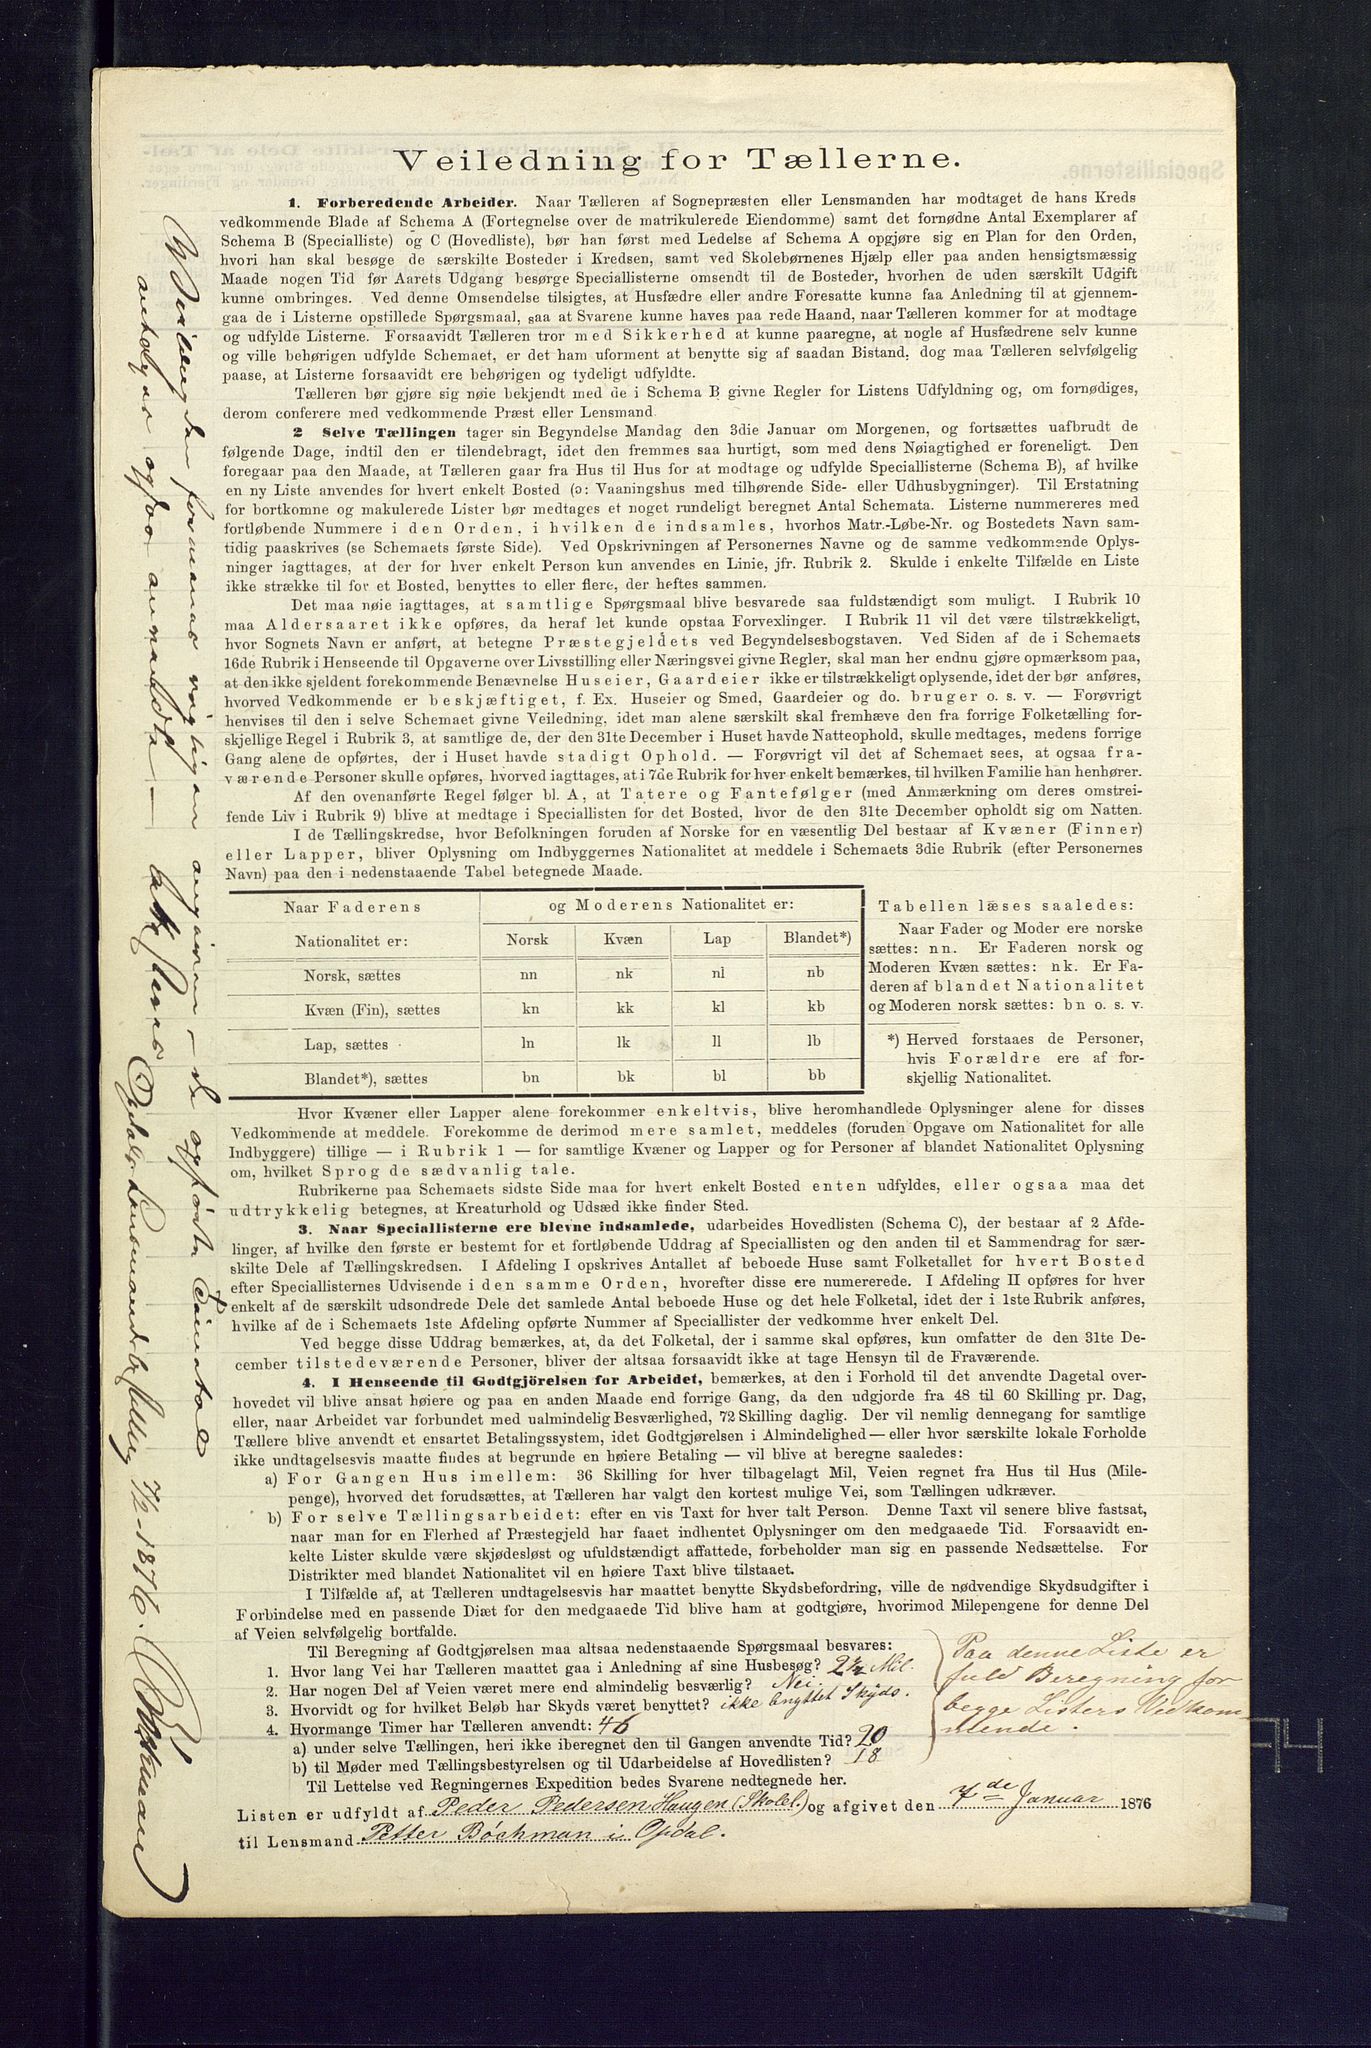 Veiledning for Tællerne.
1. Forberedende Arbeider. Naar Tælleren af Sognepræsten eller Lensmanden har modtaget de hans Kreds
vedkommende Blade af Schema A (Fortegnelse over de matrikulerede Eiendomme) samt det fornødne Antal Exemplarer af
Schema B (Specialliste) og C (Hovedliste), bør han først med Ledelse af Schema A opgjøre sig en Plan for den Orden,
hvori han skal besøge de særskilte Bosteder i Kredsen, samt ved Skolebørnenes Hjælp eller paa anden hensigtsmæssig
Maade nogen Tid før Aarets Udgang besørge Speciallisterne omsendt til de Bosteder, hvorhen de uden særskilt Udgift
kunne ombringes. Ved denne Omsendelse tilsigtes, at Husfædre eller andre Foresatte kunne faa Anledning til at gjennem-
gaa de i Listerne opstillede Spørgsmaal, saa at Svarene kunne haves paa rede Haand, naar Tælleren kommer for at modtage
og udfylde Listerne. Forsaavidt Tælleren tror med Sikkerhed at kunne paaregne, at nogle af Husfædrene selv kunne
og ville behørigen udfylde Schemaet, er det ham uforment at benytte sig af saadan Bistand, dog maa Tælleren selvfølgelig
paase, at Listerne forsaavidt ere behørigen og tydeligt udfyldte.
Tælleren bør gjøre sig nøie bekjendt med de i Schema B givne Regler for Listens Udfyldning og, om fornødiges,
derom conferere med vedkommende Præst eller Lensmand.
2 Selve Tællingen tager sin Begyndelse Mandag den 3die Januar om Morgenen, og fortsættes uafbrudt de
følgende Dage, indtil den er tilendebragt, idet den fremmes saa hurtigt, som med dens Nøiagtighed er foreneligt. Den
foregaar paa den Maade, at Tælleren gaar fra Hus til Hus for at modtage og udfylde Speciallisterne (Schema B), af hvilke
en ny Liste anvendes for hvert enkelt Bosted (ɔ: Vaaningshus med tilhørende Side- eller Udhusbygninger). Til Erstatning
for bortkomne og makulerede Lister bør medtages et noget rundeligt beregnet Antal Schemata. Listerne nummereres med
fortløbende Nummere i den Orden, i hvilken de indsamles, hvorhos Matr.-Løbe-Nr. og Bostedets Navn sam-
tidig paaskrives (se Schemaets første Side). Ved Opskrivningen af Personernes Navne og de samme vedkommende Oplys-
ninger iagttages, at der for hver enkelt Person kun anvendes en Linie, jfr. Rubrik 2. Skulde i enkelte Tilfælde en Liste
ikke strække til for et Bosted, benyttes to eller flere, der heftes sammen.
Det maa nøie iagttages, at samtlige Spørgsmaal blive besvarede saa fuldstændigt som muligt. I Rubrik 10
maa Aldersaaret ikke opføres, da heraf let kunde opstaa Forvexlinger. I Rubrik 11 vil det være tilstrækkeligt,
hvor Sognets Navn er anført, at betegne Præstegjeldets ved Begyndelsesbogstaven. Ved Siden af de i Schemaets
16de Rubrik i Henseende til Opgaverne over Livsstilling eller Næringsvei givne Regler, skal man her endnu gjøre opmærksom paa,
at den ikke sjeldent forekommende Benævnelse Huseier, Gaardeier ikke er tilstrækkeligt oplysende, idet der bør anføres,
hvorved Vedkommende er beskjæftiget, f. Ex. Huseier og Smed, Gaardeier og do. bruger o. s. v. — Forøvrigt
henvises til den i selve Schemaet givne Veiledning, idet man alene særskilt skal fremhæve den fra forrige Folketælling for-
skjellige Regel i Rubrik 3, at samtlige de, der den 31te December i Huset havde Natteophold, skulle medtages, medens forrige
Gang alene de opførtes, der i Huset havde stadigt Ophold. — Forøvrigt vil det af Schemaet sees, at ogsaa fra-
værende Personer skulle opføres, hvorved iagttages, at i 7de Rubrik for hver enkelt bemærkes, til hvilken Familie han henhører.
Af den ovenanførte Regel følger bl. A, at Tatere og Fantefølger (med Anmærkning om deres omstrei-
fende Liv i Rubrik 9) blive at medtage i Speciallisten for det Bosted, hvor de den 31te December opholdt sig om Natten.
I de Tællingskredse, hvor Befolkningen foruden af Norske for en væsentlig Del bestaar af Kvæner (Finner)
eller Lapper, bliver Oplysning om Indbyggernes Nationalitet at meddele i Schemaets 3die Rubrik (efter Personernes
Navn) paa den i nedenstaaende Tabel betegnede Maade.
Naar Faderens og Moderens Nationalitet er:
Nationalitet er: Norsk Kvæn Lap Blandet*)
Norsk, sættes nn nk nl nb
Kvæn (Fin), sættes kn kk kl kb
Lap, sættes ln lk ll lb
Blandet*), sættes bn bk bl bb
Tabellen læses saaledes:
Naar Fader og Moder ere norske
sættes: nn. Er Faderen norsk og
Moderen Kvæn sættes: nk. Er Fa-
deren af blandet Nationalitet
og Moderen norsk sættes: bn o. s. v.
*) Herved forstaaes de Personer,
hvis Forældre ere af for-
skjellig Nationalitet.
Hvor Kvæner eller Lapper alene forekommer enkeltvis, blive heromhandlede Oplysninger alene for disses
Vedkommende at meddele. Forekomme de derimod mere samlet, meddeles (foruden Opgave om Nationalitet for alle
Indbyggere) tillige — i Rubrik 1 — for samtlige Kvæner og Lapper og for Personer af blandet Nationalitet Oplysning
om, hvilket Sprog de sædvanlig tale.
Rubrikerne paa Schemaets sidste Side maa for hvert enkelt Bosted enten udfyldes, eller ogsaa maa det
udtrykkelig betegnes, at Kreaturhold og Udsæd ikke finder Sted.
3. Naar Speciallisterne ere blevne indsamlede, udarbeides Hovedlisten (Schema C), der bestaar af 2 Afde-
linger, af hvilke den første er bestemt for et fortløbende Uddrag af Speciallisten og den anden til et Sammendrag for sær-
skilte Dele af Tællingskredsen. I Afdeling I opskrives Antallet af beboede Huse samt Folketallet for hvert Bosted
efter Speciallisternes Udvisende i den samme Orden, hvorefter disse ere numererede. I Afdeling II opføres for hver
enkelt af de særskilt udsondrede Dele det samlede Antal beboede Huse og det hele Folketal, idet der i 1ste Rubrik anføres,
hvilke af de i Schemaets 1ste Afdeling opførte Nummer af Speciallister der vedkomme hver enkelt Del.
Ved begge disse Uddrag bemærkes, at, da det Folketal, der i samme skal opføres, kun omfatter de den 31te De-
cember tilstedeværende Personer, bliver der altsaa forsaavidt ikke at tage Hensyn til de Fraværende.
4. I Henseende til Godtgjörelsen for Arbeidet, bemærkes, at den i Forhold til det anvendte Dagetal over-
hovedet vil blive ansat høiere og paa en anden Maade end forrige Gang, da den udgjorde fra 48 til 60 Skilling pr. Dag,
eller, naar Arbeidet var forbundet med ualmindelig Besværlighed, 72 Skilling daglig. Der vil nemlig dennegang for samtlige
Tællere blive anvendt et ensartet Betalingssystem, idet Godtgjørelsen i Almindelighed — eller hvor særskilte lokale Forholde
ikke undtagelsesvis maatte findes at begrunde en høiere Betaling — vil blive at beregne saaledes:
a) For Gangen Hus imellem: 36 Skilling for hver tilbagelagt Mil, Veien regnet fra Hus til Hus (Mile-
penge), hvorved det forudsættes, at Tælleren har valgt den kortest mulige Vei, som Tællingen udkræver.
b) For selve Tællingsarbeidet: efter en vis Taxt for hver talt Person. Denne Taxt vil senere blive fastsat,
naar man for en Flerhed af Præstegjeld har faaet indhentet Oplysninger om den medgaaede Tid. Forsaavidt en-
kelte Lister skulde være skjødesløst og ufuldstændigt affattede, forbeholder man sig en passende Nedsættelse. For
Distrikter med blandet Nationalitet vil en høiere Taxt blive tilstaaet.
I Tilfælde af, at Tælleren undtagelsesvis har maattet benytte Skydsbefordring, ville de nødvendige Skydsudgifter i
Forbindelse med en passende Diæt for den medgaaede Tid blive ham at godtgjøre, hvorimod Milepengene for denne Del
af Veien selvfølgelig bortfalde.
Til Beregning af Godtgjørelsen maa altsaa nedenstaaende Spørgsmaal besvares:
1. Hvor lang Vei har Tælleren maattet gaa i Anledning af sine Husbesøg? 2½ Mil.
2. Har nogen Del af Veien været mere end almindelig besværlig? Nei.
3. Hvorvidt og for hvilket Beløb har Skyds været benyttet? ikke bnyttet Skyds.
4. Hvormange Timer har Tælleren anvendt: 46
a) under selve Tællingen, heri ikke iberegnet den til Gangen anvendte Tid? 20
b) til Møder med Tællingsbestyrelsen og til Udarbeidelse af Hovedlisten? 18
Til Lettelse ved Regningernes Expedition bedes Svarene nedtegnede her.
Paa denne Liste er
fuld Beregning for
begge Listers Vedkom-
mende.
Listen er udfyldt af Peder Pedersen Haugen (Skolel.) og afgivet den 7de Januar 1876
til Lensmand Petter Böchman i Opdal.
formenes rigtig angiven — de opførte Timetal
antages ogsaa
Opdals Lensmandsbestilling 7/2-1876.